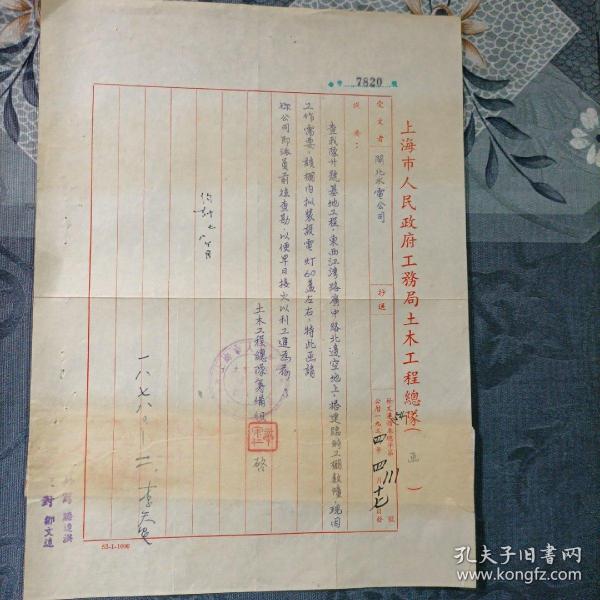 字 7820 號
上海市人民政府工務局土木工程總隊（函）
受文者 閘北水電公司
抄送
發文
公曆一九五四年四月十七日
事由：
查我隊廿號基地工程，東西江灣路廣中路北邊空地上，搭建臨時工棚数幢，现因
工作需要，該棚内拟装設電灯60盏左右，特此函請
你公司即派員前往查勘，以便早日接火以利工進為荷。
土木工程總隊籌備組 啓
一八七八〇一二．李
對 鄒文遠
53-1-1000
孔夫子旧书网
www.kongfz.com